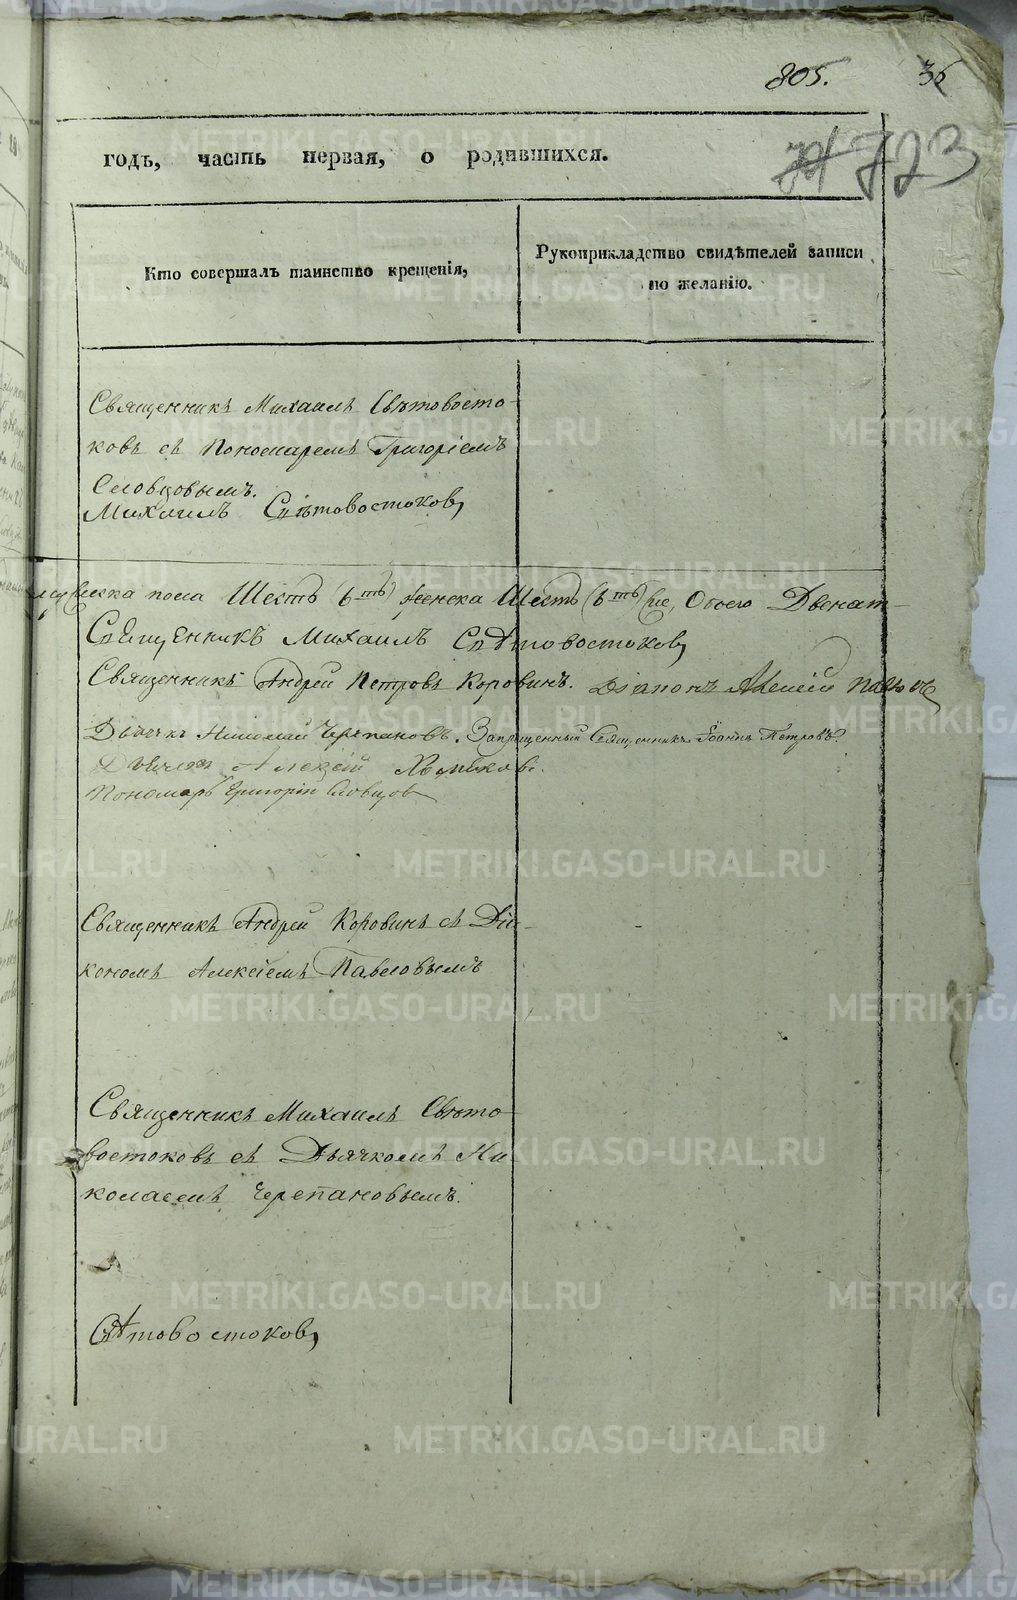 805. 36
723
годъ, часть первая, о родившихся.
Кто совершалъ таинство крещенія,
Рукоприкладство свидѣтелей записи
по желанію.
Священникъ Михаилъ Свѣтовосто-
ковъ съ Пономаремъ Григоріемъ
Словцовымъ.
Михаилъ Свѣтовостоковъ
пола Шесть (6ть) женска Шесть (6ть) Обоего Двенат-
Священникъ Михаилъ Свѣтовостоковъ
Священникъ Андрей Петровъ Коровинъ. Діаконъ Алексій Павловъ
Дьячекъ Николай Черепановъ. Запрещенный Священникъ Іоаннъ Петровъ.
Дьячекъ Алексѣй
Пономарь Григорій Словцов
Священникъ Андрей Коровинъ съ Діа-
кономъ Алексіемъ Павловымъ
Священникъ Михаилъ Свѣто-
востоковъ съ Дьячкомъ Ни-
колаемъ Черепановымъ.
Свѣтовостоковъ
METRIKI.GASO-URAL.RU